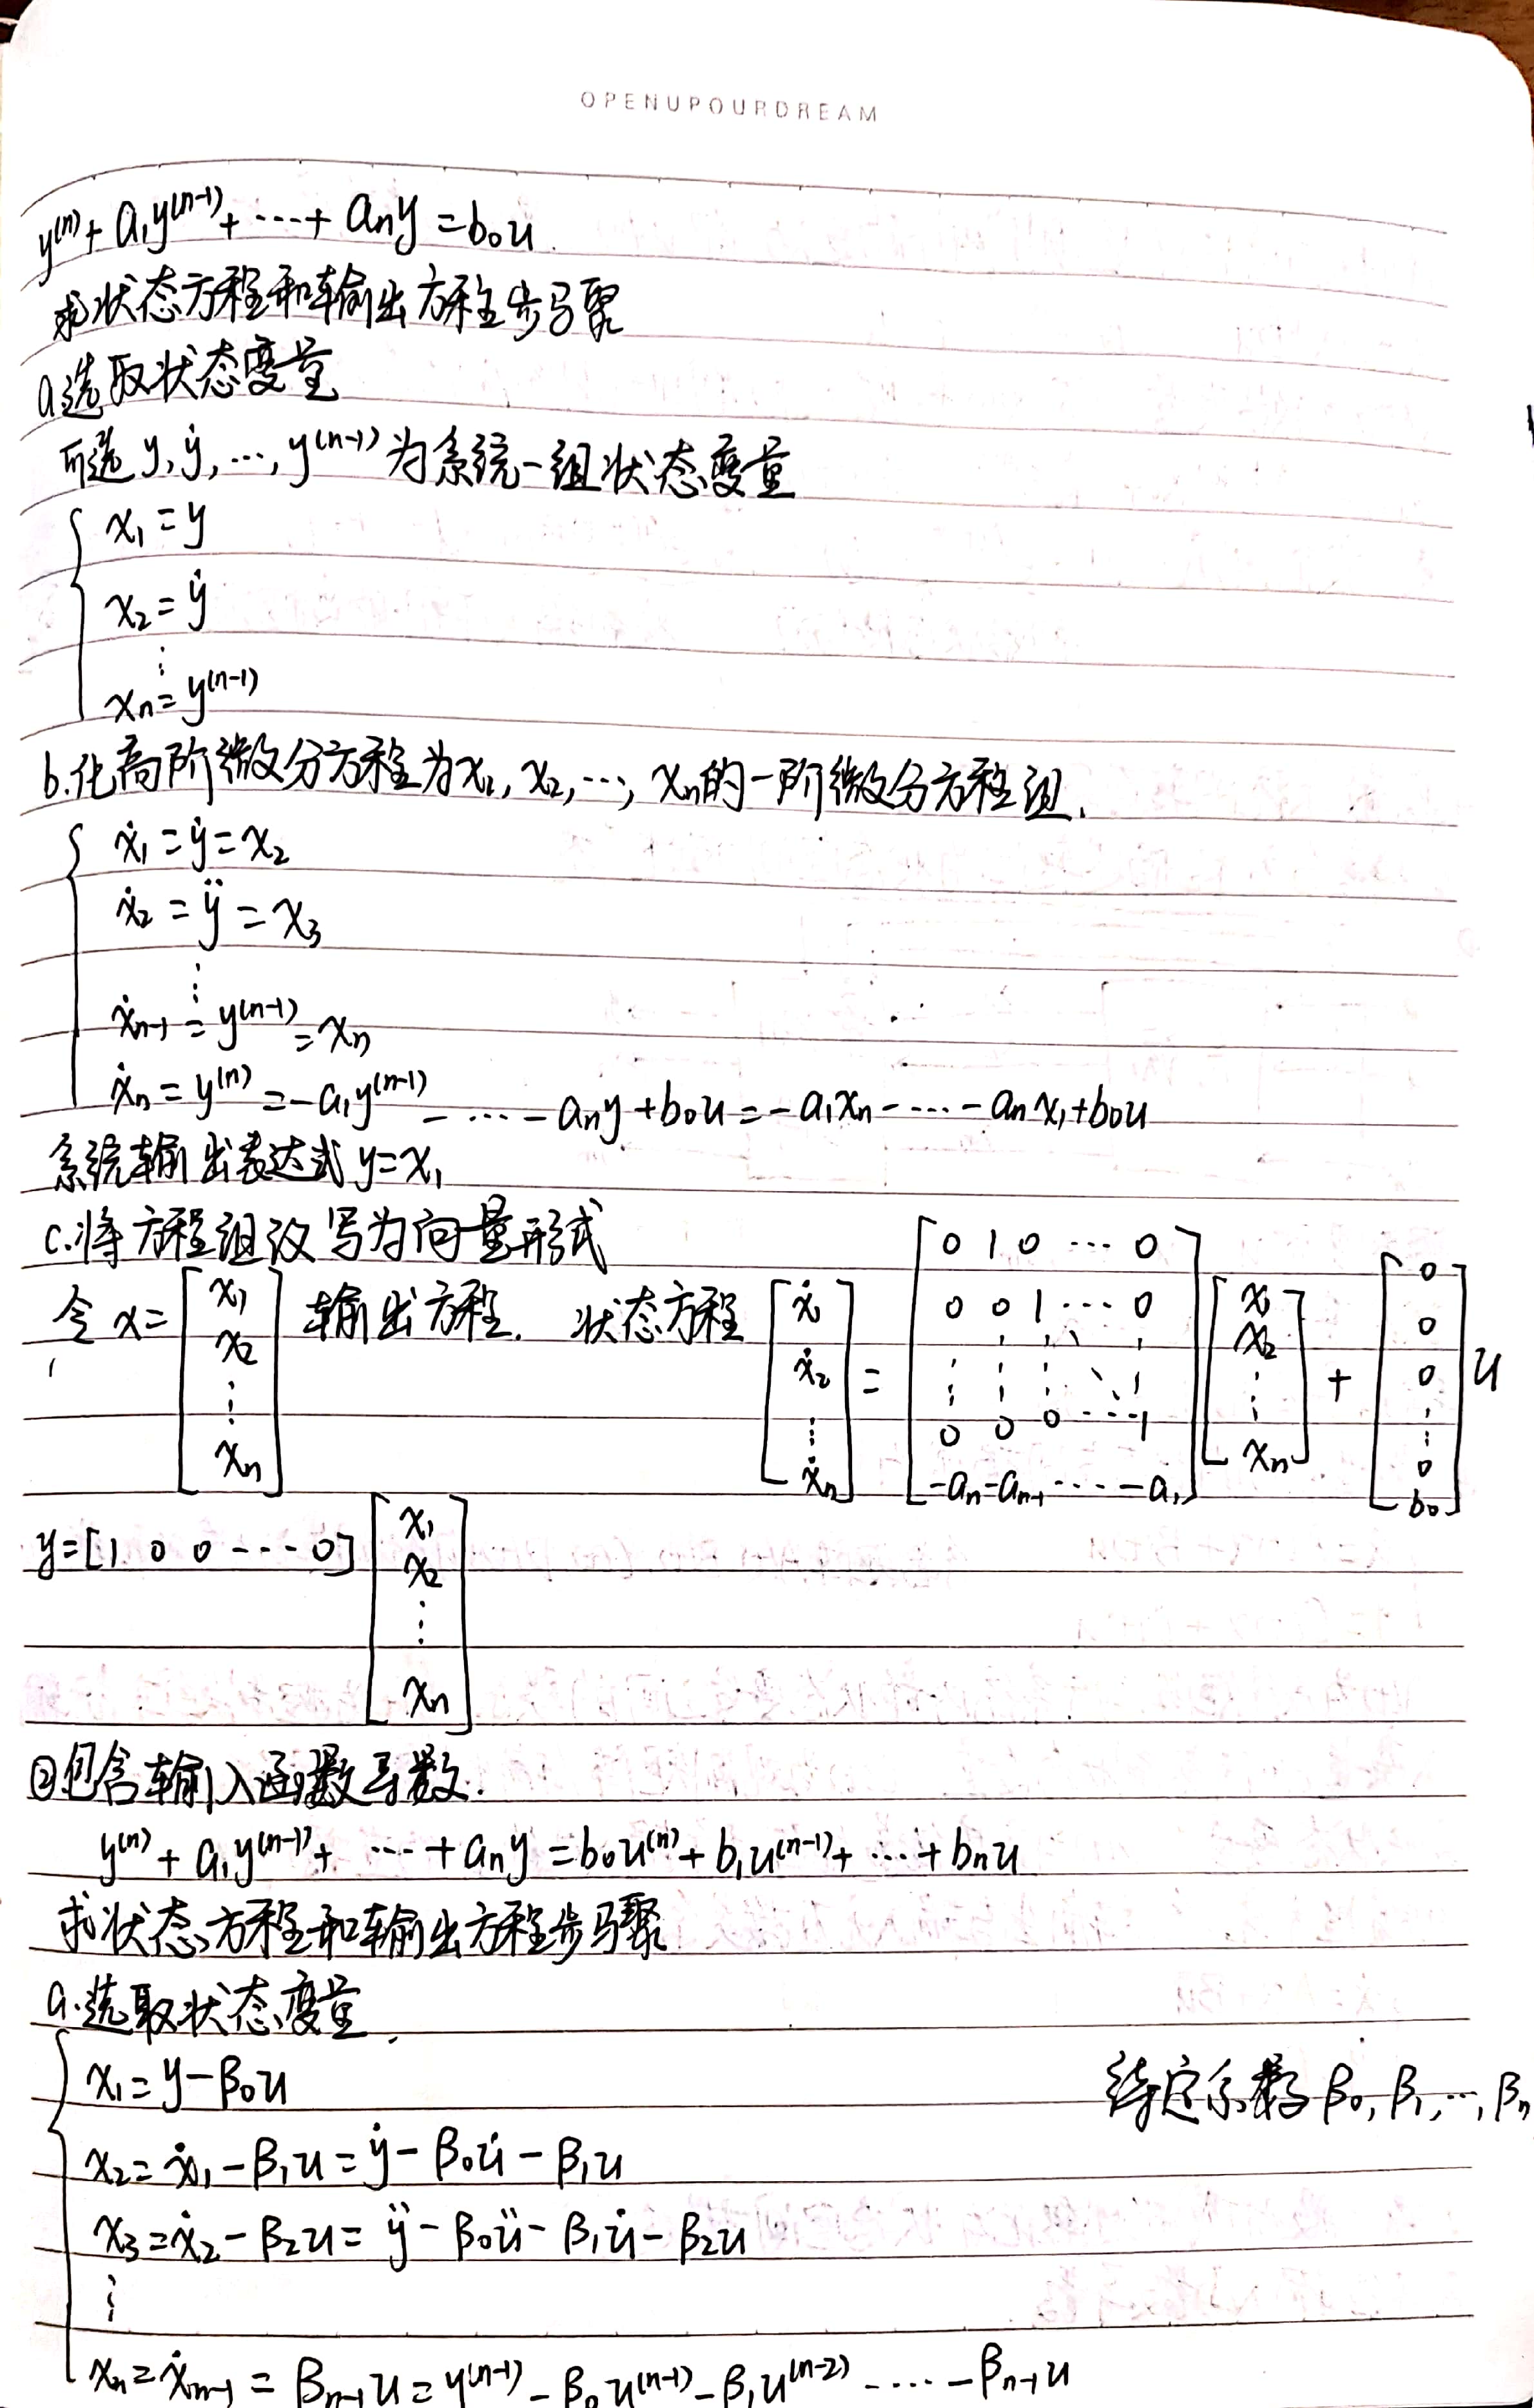 OPENUPOURDREAM
y⁽ⁿ⁾ + a₁y⁽ⁿ⁻¹⁾ + ⋯ + aₙy = b₀u.
求状态方程和输出方程步骤
a选取状态变量
可选 y, ẏ, ⋯, y⁽ⁿ⁻¹⁾ 为系统一组状态变量
{ x₁ = y
x₂ = ẏ
⋮
xₙ = y⁽ⁿ⁻¹⁾
b.化高阶微分方程为x₁, x₂, ⋯, xₙ的一阶微分方程组.
{ ẋ₁ = ẏ = x₂
ẋ₂ = ÿ = x₃
⋮
ẋₙ₋₁ = y⁽ⁿ⁻¹⁾ = xₙ
ẋₙ = y⁽ⁿ⁾ = -a₁y⁽ⁿ⁻¹⁾ - ⋯ - aₙy + b₀u = -a₁xₙ - ⋯ - aₙx₁ + b₀u
系统输出表达式 y = x₁
c.将方程组改写为向量形式
令 x = [x₁ x₂ ⋮ xₙ] 输出方程. 状态方程 [ẋ₁ ẋ₂ ⋮ ẋₙ] = [0 1 0 ⋯ 0; 0 0 1 ⋯ 0; ⋮ ⋮ ⋮ ⋱ ⋮; 0 0 0 ⋯ 1; -aₙ -aₙ₋₁ ⋯ -a₁] [x₁ x₂ ⋮ xₙ] + [0 0 0 ⋮ 0 b₀] u
y = [1 0 0 ⋯ 0] [x₁ x₂ ⋮ xₙ]
②包含输入函数导数.
y⁽ⁿ⁾ + a₁y⁽ⁿ⁻¹⁾ + ⋯ + aₙy = b₀u⁽ⁿ⁾ + b₁u⁽ⁿ⁻¹⁾ + ⋯ + bₙu
求状态方程和输出方程步骤
a.选取状态变量.
{ x₁ = y - β₀u 待定系数 β₀, β₁, ⋯, βₙ
x₂ = ẋ₁ - β₁u = ẏ - β₀u̇ - β₁u
x₃ = ẋ₂ - β₂u = ÿ - β₀ü - β₁u̇ - β₂u
⋮
xₙ = ẋₙ₋₁ = βₙ₋₁u = y⁽ⁿ⁻¹⁾ - β₀u⁽ⁿ⁻¹⁾ - β₁u⁽ⁿ⁻²⁾ - ⋯ - βₙ₋₁u